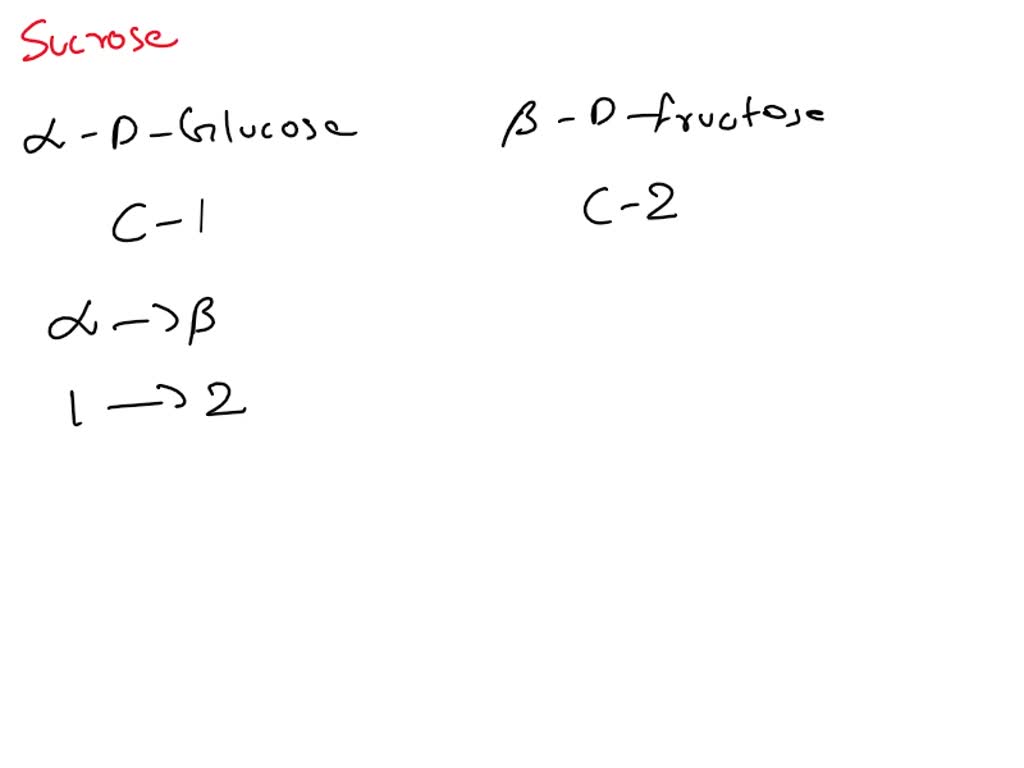 Sucrose
α - D - Glucose
β - D - fructose
C - 1
C - 2
α → β
1 → 2